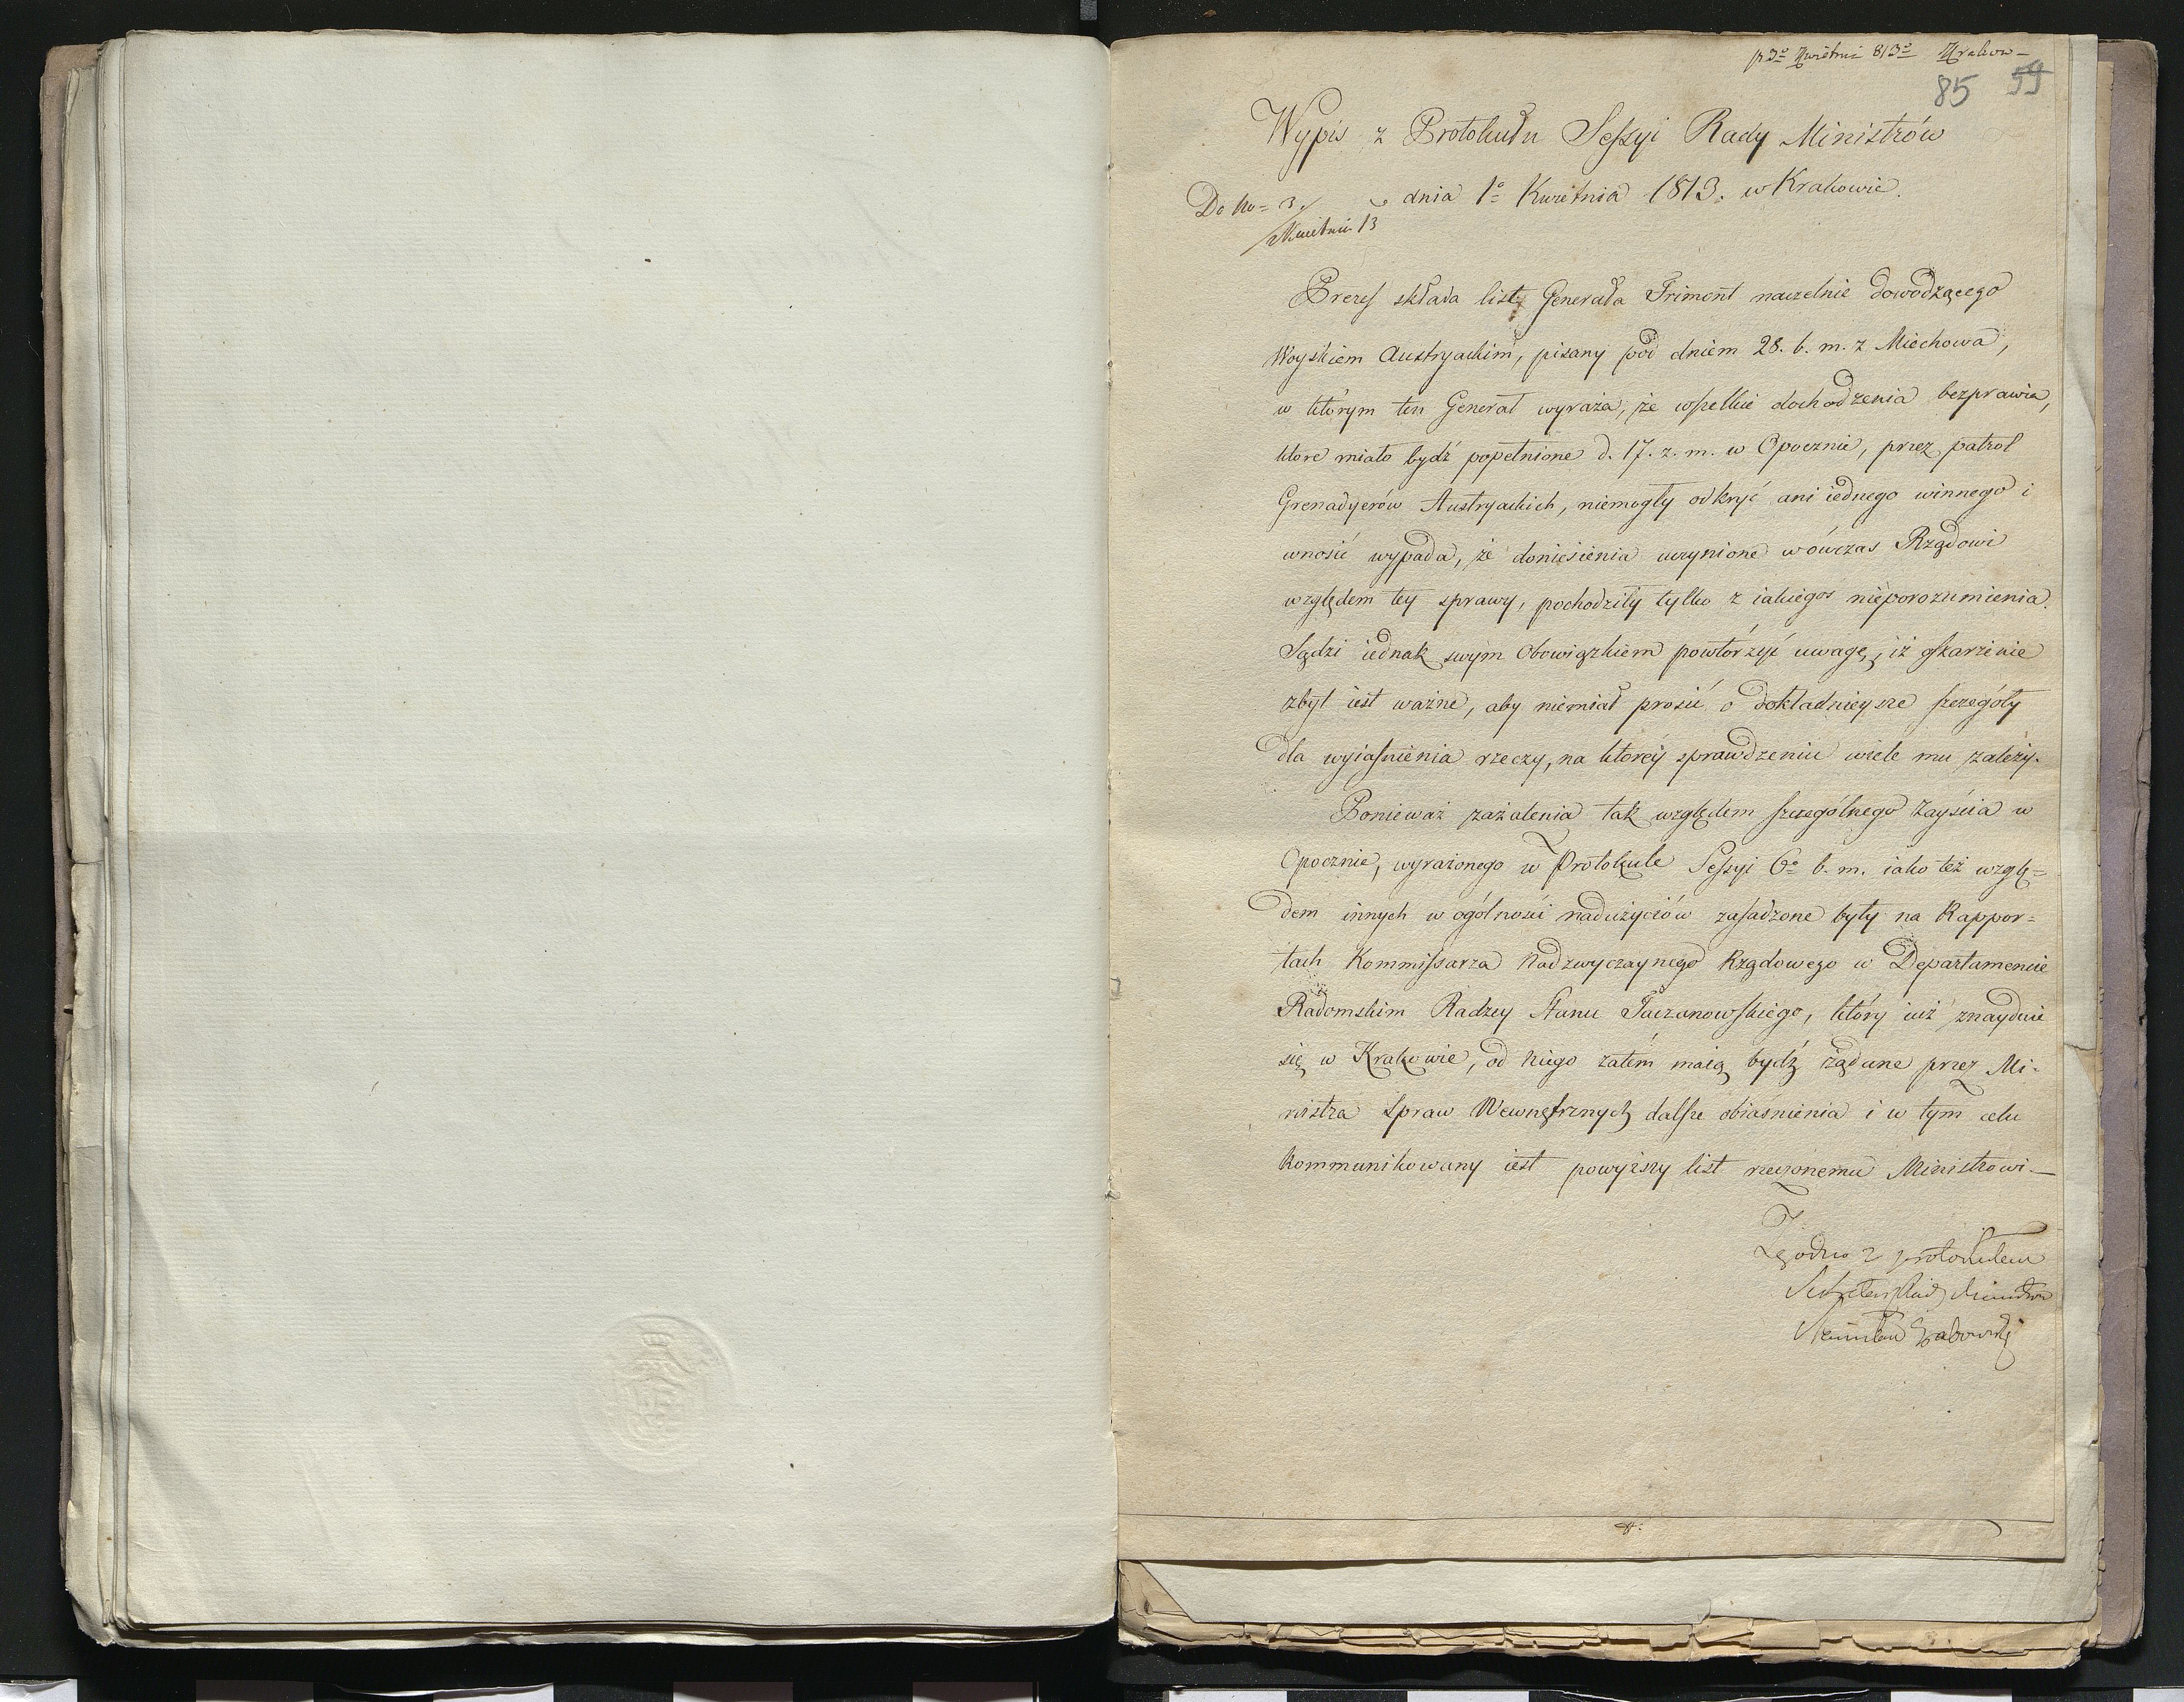 p 3º Kwietnia 813º Krakow
85 59
Wypis z Protokułu Sessyi Rady Ministrów
Do No = 3 z dnia 1º Kwietnia 1813. w Krakowie.
Kwietnia 13
Prezes składa list Generała Frimont naczelnie dowodzącego
Woyskiem Austryackim, pisany pod dniem 28. b. m. z Miechowa,
w którym ten Generał wyraża, że wszelkie dochodzenia bezprawia,
ktore miało bydź popełnione d. 17. z. m. w Opocznie, przez patrol
Grenadyerów Austryackich, niemogły odkryć ani iednego winnego i
wnosić wypada, że doniesienia uczynione wówczas Rządowi
względem tey sprawy, pochodziły tylko z iakiegos nieporozumienia.
Sądzi iednak swym Obowiązkiem powtórzyć uwagę, iż oskarżenie
zbyt iest ważne, aby niemiał prosić o dokładnieysze szczegóły
dla wyiaśnienia rzeczy, na ktorey sprawdzeniu wiele mu zależy.
Ponieważ zażalenia tak względem szczególnego zayścia w
Opocznie, wyrażonego w Protokule Sessyi 6º b. m. iako też wzglę=
dem innych w ogólności nadużyciów zasadzone były na Rappor=
tach Kommissarza Nadzwyczaynego Rządowego w Departamencie
Radomskim Radzcy Stanu Taczanowskiego, który iuż znayduie
się w Krakowie, od niego zatém maią bydź żądane przez Mi-
nistra Spraw Wewnętrznych dalsze obiaśnienia i w tym celu
kommunikowany iest powyższy list rzeczonemu Ministrowi.—
Zgodno z protokułem
Sekretarz Rady Ministrów
Stanisław Grabowski